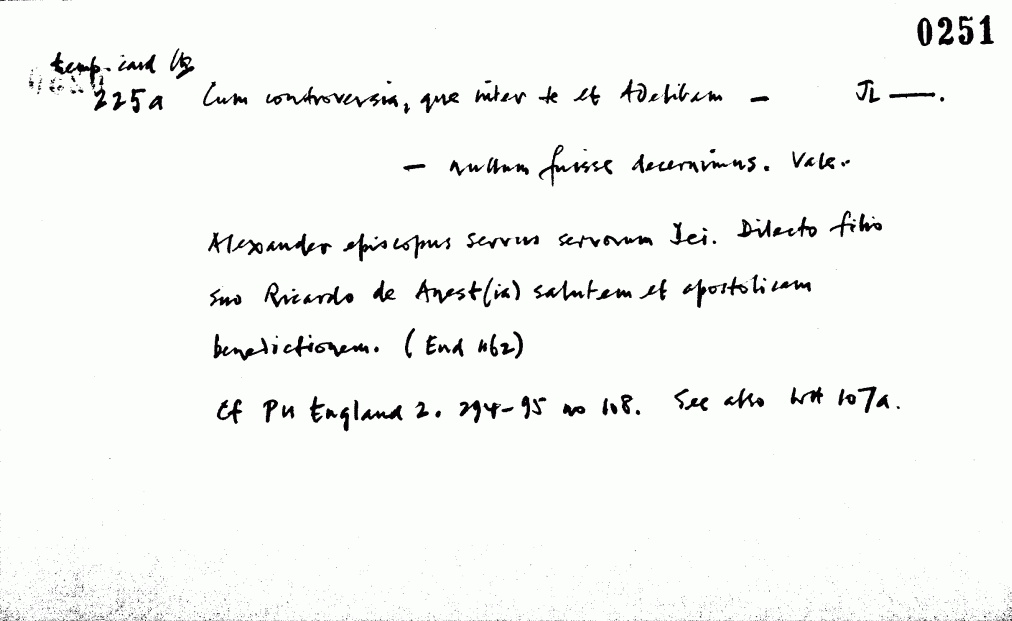 0251
temp. card
225a Cum controversia, que inter te et Adelitam — JL —.
— nullum fuisse decernimus. Vale.
Alexander episcopus servus servorum Dei. Dilecto filio
suo Ricardo de Anest(ia) salutem et apostolicam
benedictionem. (End 1162)
Cf PU England 2. 294-95 no 108. See also WH 107a.